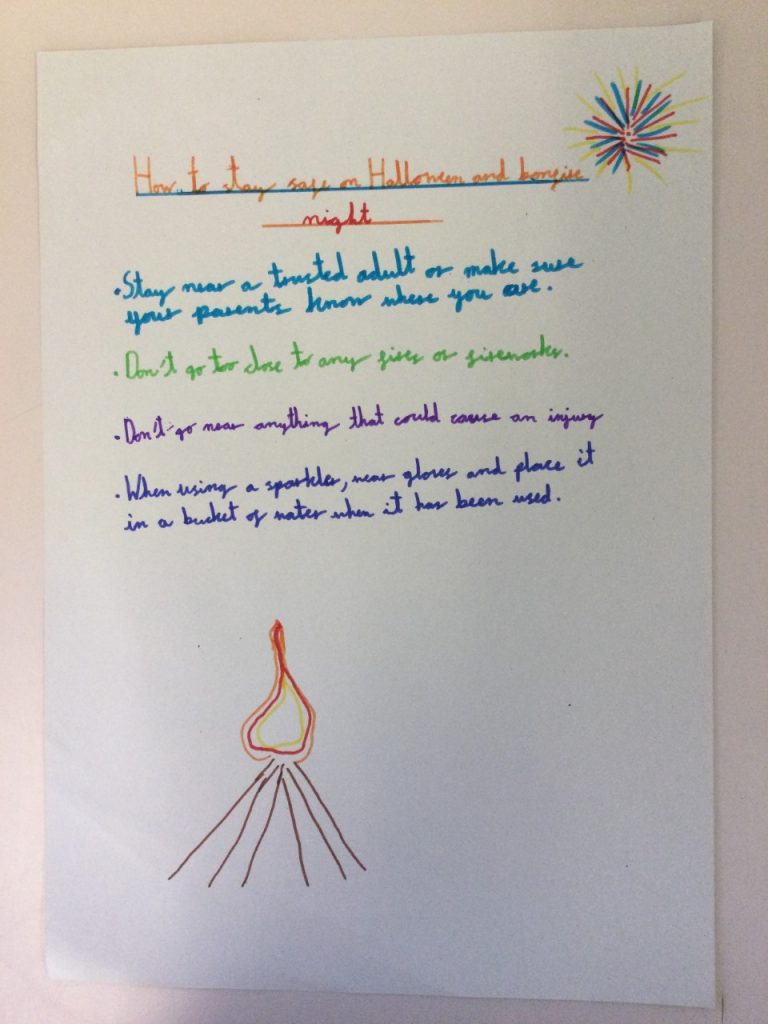 How to stay safe on Halloween and bonfire
night
• Stay near a trusted adult or make sure
your parents know where you are.
• Don't go too close to any fires or fireworks.
• Don't go near anything that could cause an injury
• When using a sparkler, wear gloves and place it
in a bucket of water when it has been used.